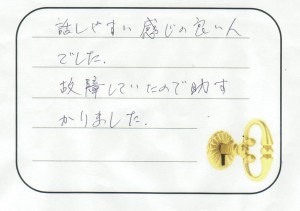 話しやすい感じの良い人
でした.
故障していたので助す
かりました.